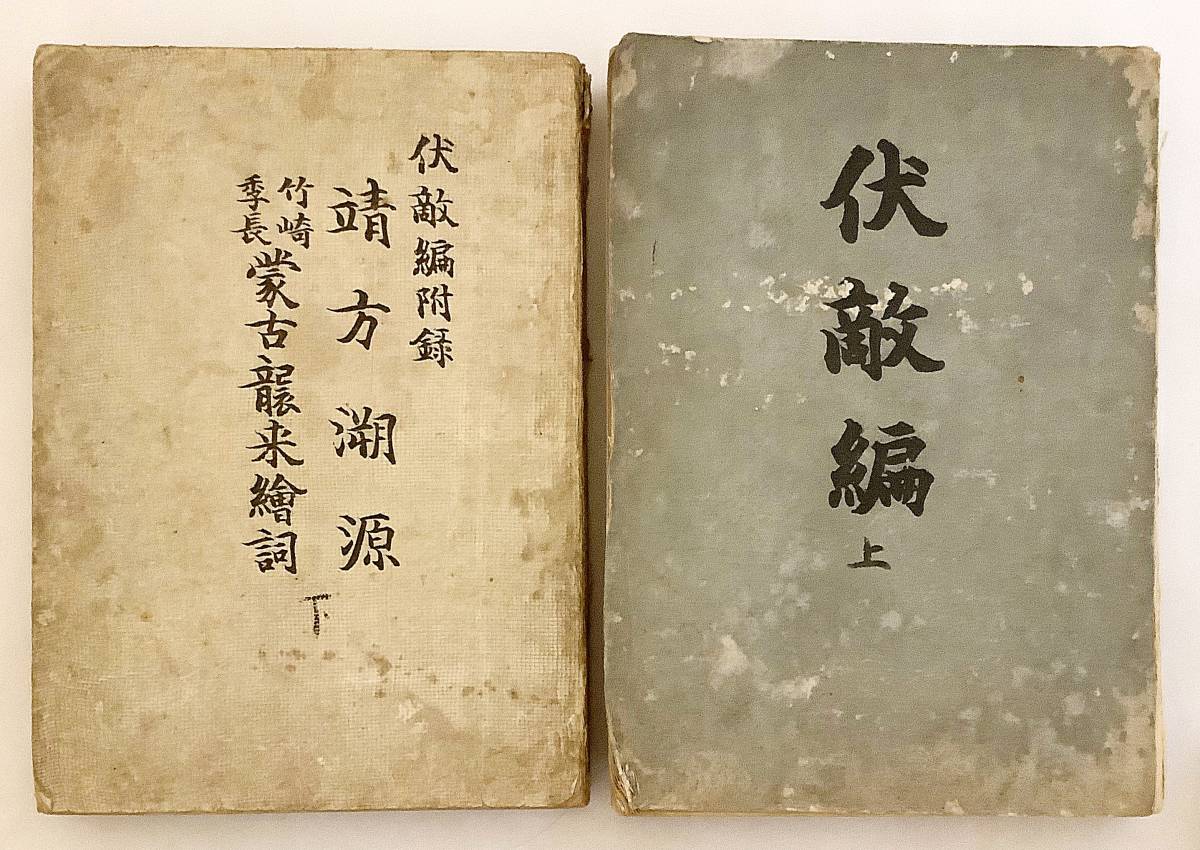 伏敵編附録
靖方溯源
竹崎
季長
蒙古襲来繪詞
下
伏敵編
上